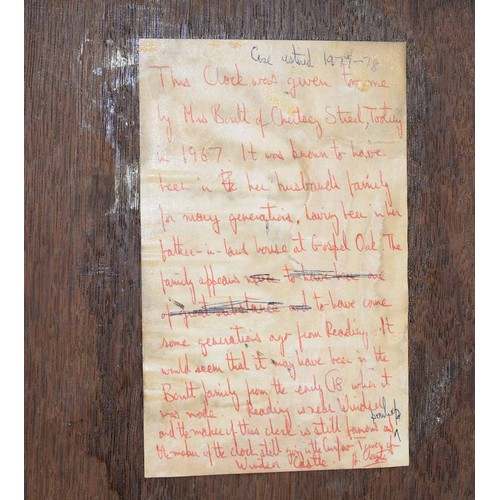 Case restored 1977-78
This Clock was given to me
by Mrs Boult of Chertsey Street, Tooting
in 1967. It was known to have
been in her husband's family
for many generations, having been in her
father-in-laws house at Gospel Oak. The
family appears to have come
some generations ago from Reading. It
would seem that it may have been in the
Boult family from the early C18 when it
was made. Reading is near Windsor
and the maker of this clock is still famous as
the maker of the clock still going in the Curfew Tower of
Windsor Castle.
perhaps